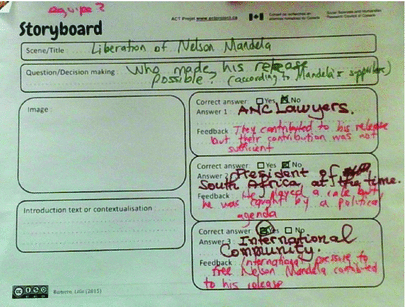 equipe 2
ACT Projet www.actproject.ca
Storyboard
Scene/Title Liberation of Nelson Mandela
Question/Decision making Who made his release
possible? (according to Mandela's supporters)
Image
Correct answer Yes No
Answer 1 ANC Lawyers.
Feedback They contributed to his release
but their contribution was not
sufficient
Correct answer Yes No
Answer 2 President of
South Africa at the time.
Feedback He played a role but
he was caught by a political
agenda
Introduction text or contextualisation
Correct answer Yes No
Answer 3 International
Community.
Feedback International pressure to
free Nelson Mandela contributed
to his release